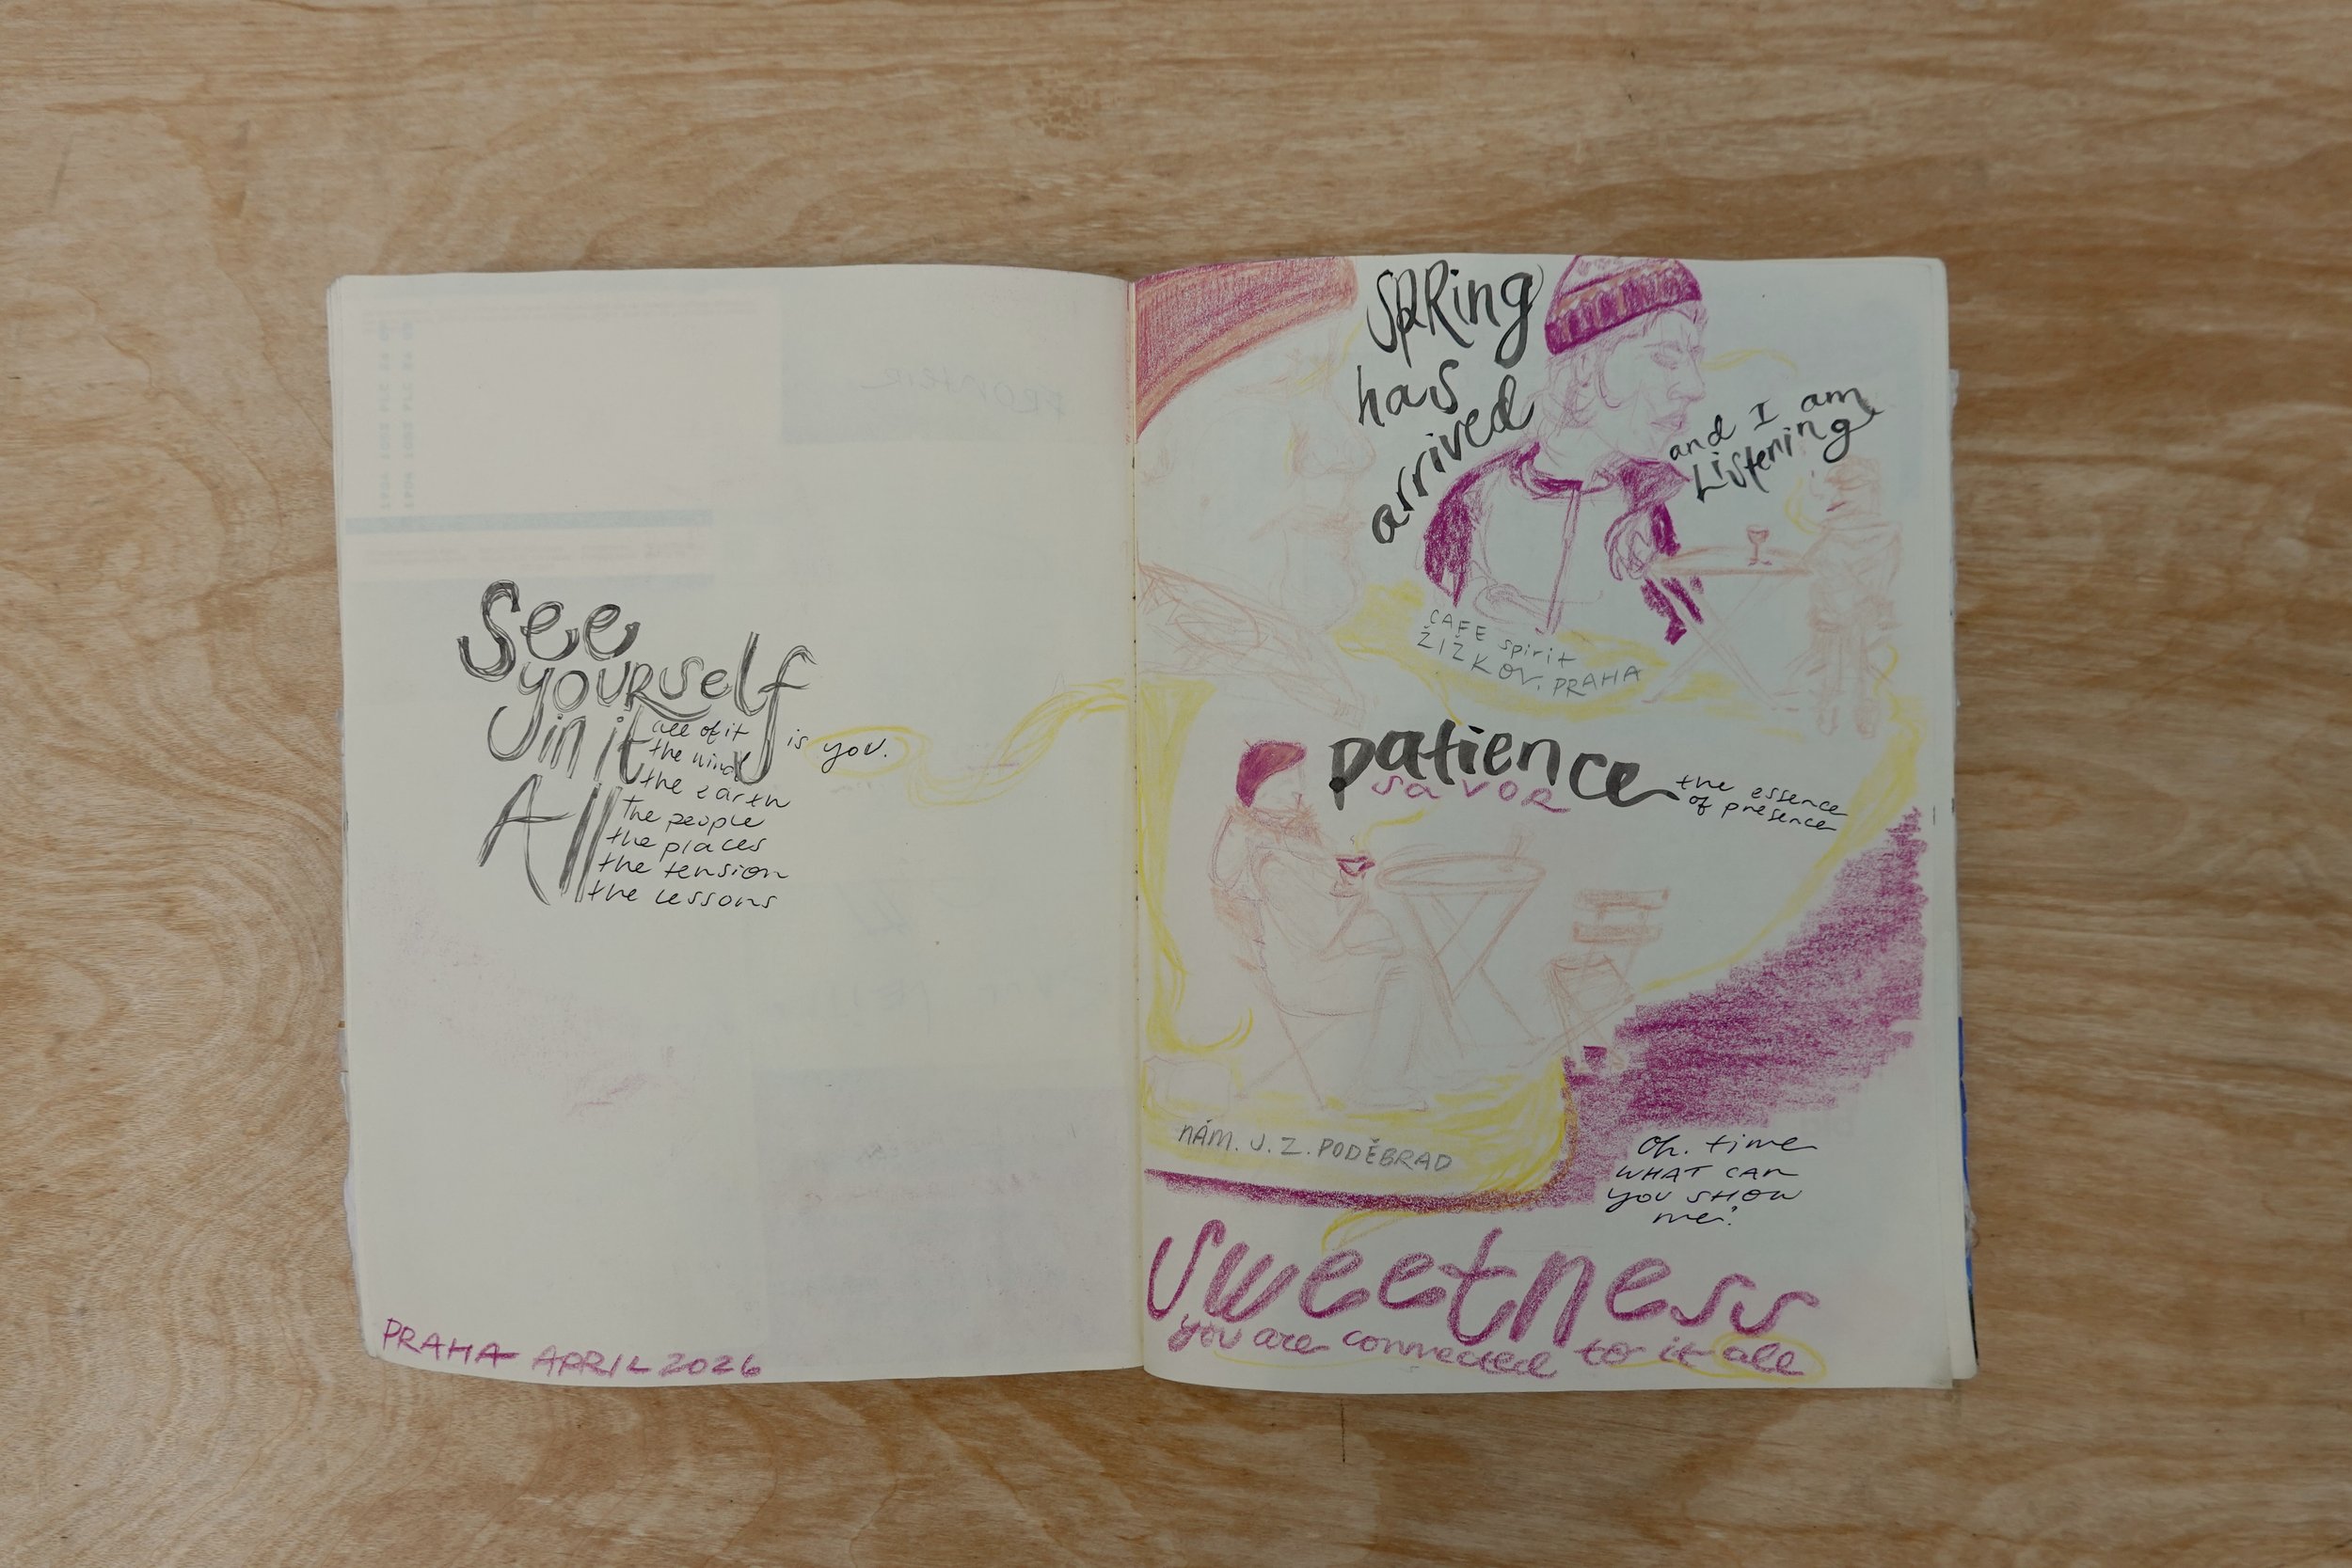 See
yourself
in it
All
all of it
the wind
the earth
the people
the places
the tension
the lessons
is you.
PRAHA APRIL 2026
SPRing
has
arrived
and I am
Listening
CAFE spirit
ŽIŽKOV, PRAHA
patience
savor
the essence
of presence
NÁM. J. Z. PODĚBRAD
Oh. time
WHAT CAN
YOU SHOW
me?
sweetness
you are connected to it all